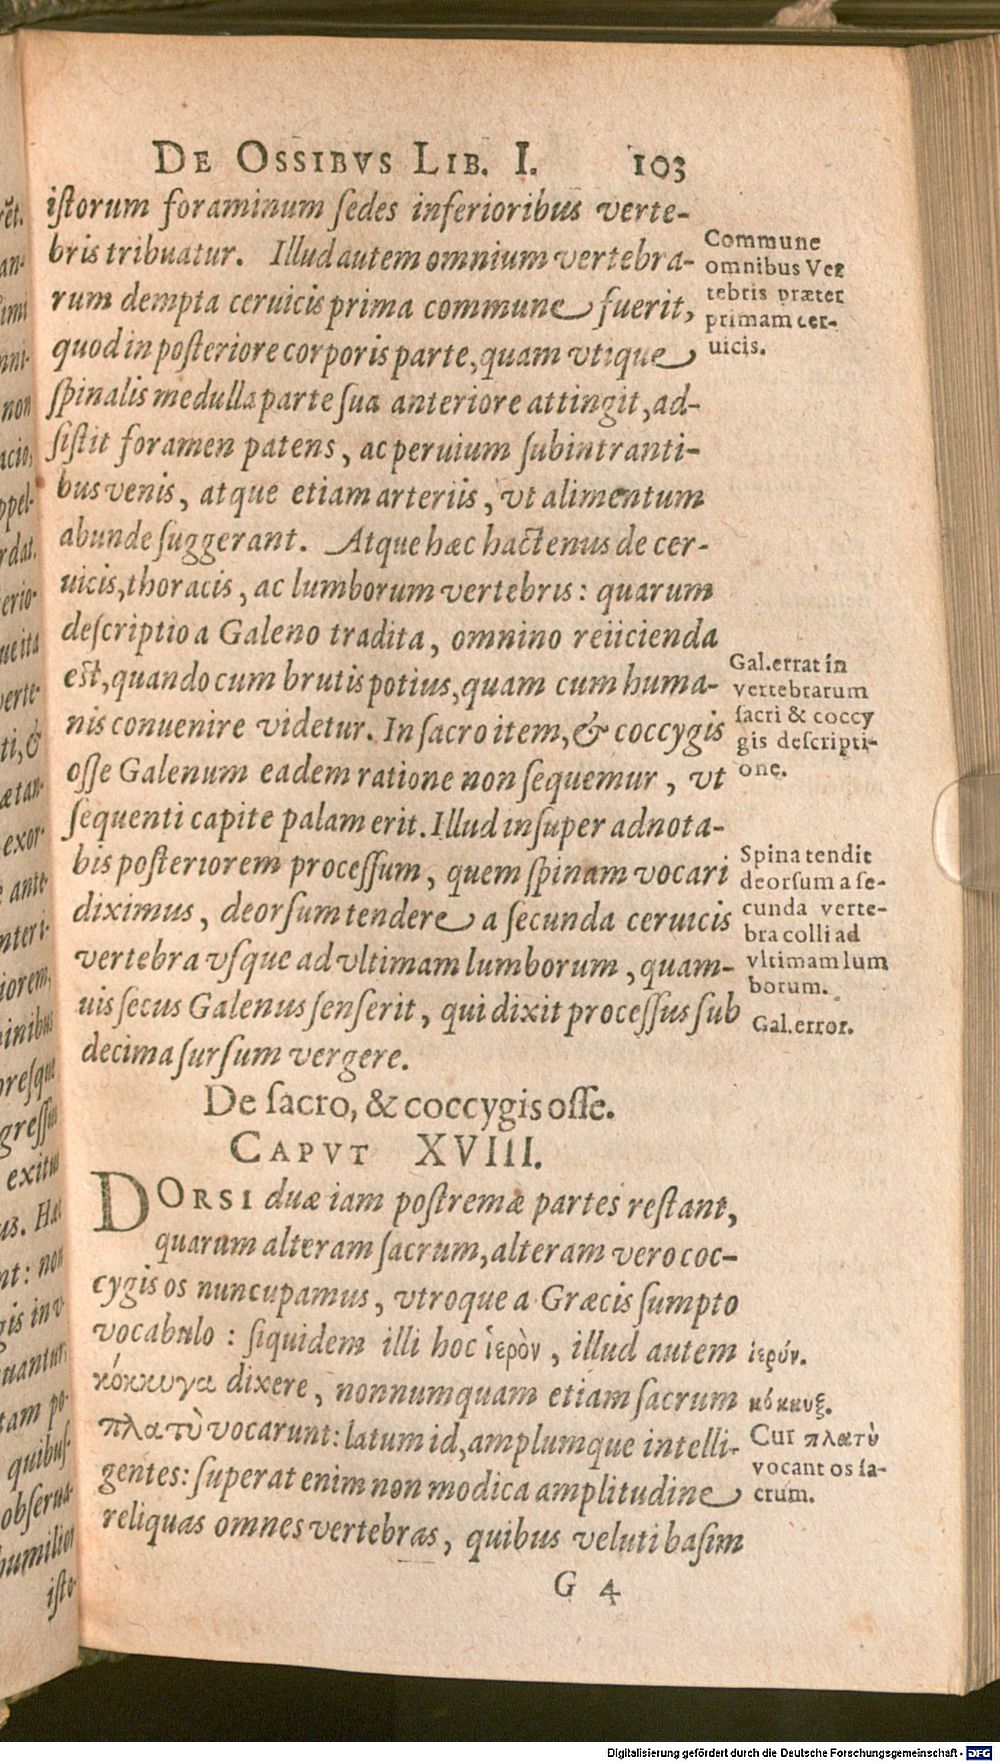 DE OSSIBVS LIB. I. 103
istorum foraminum sedes inferioribus verte-
bris tribuatur. Illud autem omnium vertebra-
rum dempta ceruicis prima commune fuerit,
quod in posteriore corporis parte, quam vtique
spinalis medulla parte sua anteriore attingit, ad-
sistit foramen patens, ac peruium subintranti-
bus venis, atque etiam arteriis, vt alimentum
abunde suggerant. Atque hæc hactenus de cer-
uicis, thoracis, ac lumborum vertebris: quarum
descriptio a Galeno tradita, omnino reiicienda
est, quando cum brutis potius, quam cum huma-
nis conuenire videtur. In sacro item, & coccygis
osse Galenum eadem ratione non sequemur, vt
sequenti capite palam erit. Illud insuper adnota-
bis posteriorem processum, quem spinam vocari
diximus, deorsum tendere a secunda ceruicis
vertebra vsque ad vltimam lumborum, quam-
uis secus Galenus senserit, qui dixit processus sub
decima sursum vergere.
Commune
omnibus Ver
tebris præter
primam cer-
uicis.
Gal. errat in
vertebrarum
sacri & coccy
gis descripti-
one.
Spina tendit
deorsum a se-
cunda verte-
bra colli ad
vltimam lum
borum.
Gal. error.
De sacro, & coccygis osse.
CAPVT XVIII.
DORSI duæ iam postremæ partes restant,
quarum alteram sacrum, alteram vero coc-
cygis os nuncupamus, vtroque a Græcis sumpto
vocabulo: siquidem illi hoc ἱερὸν, illud autem
κόκκυγα dixere, nonnumquam etiam sacrum
πλατὺ vocarunt: latum id, amplumque intelli-
gentes: superat enim non modica amplitudine
reliquas omnes vertebras, quibus veluti basim
ἱερόν.
κόκκυξ.
Cur πλατὺ
vocant os sa-
crum.
G 4
ret.
an-
nni-
non
acio,
ppel-
rdat.
erio-
ue ita
verte-
ti, &
ætan-
exor-
ante-
nteri-
iorem,
inibus
presque
gressus
exitus
us. Hæc
nt: non
gis inv-
uantur,
tam po-
quibus-
obserua-
humilior
isto-
Digitalisierung gefördert durch die Deutsche Forschungsgemeinschaft - DFG